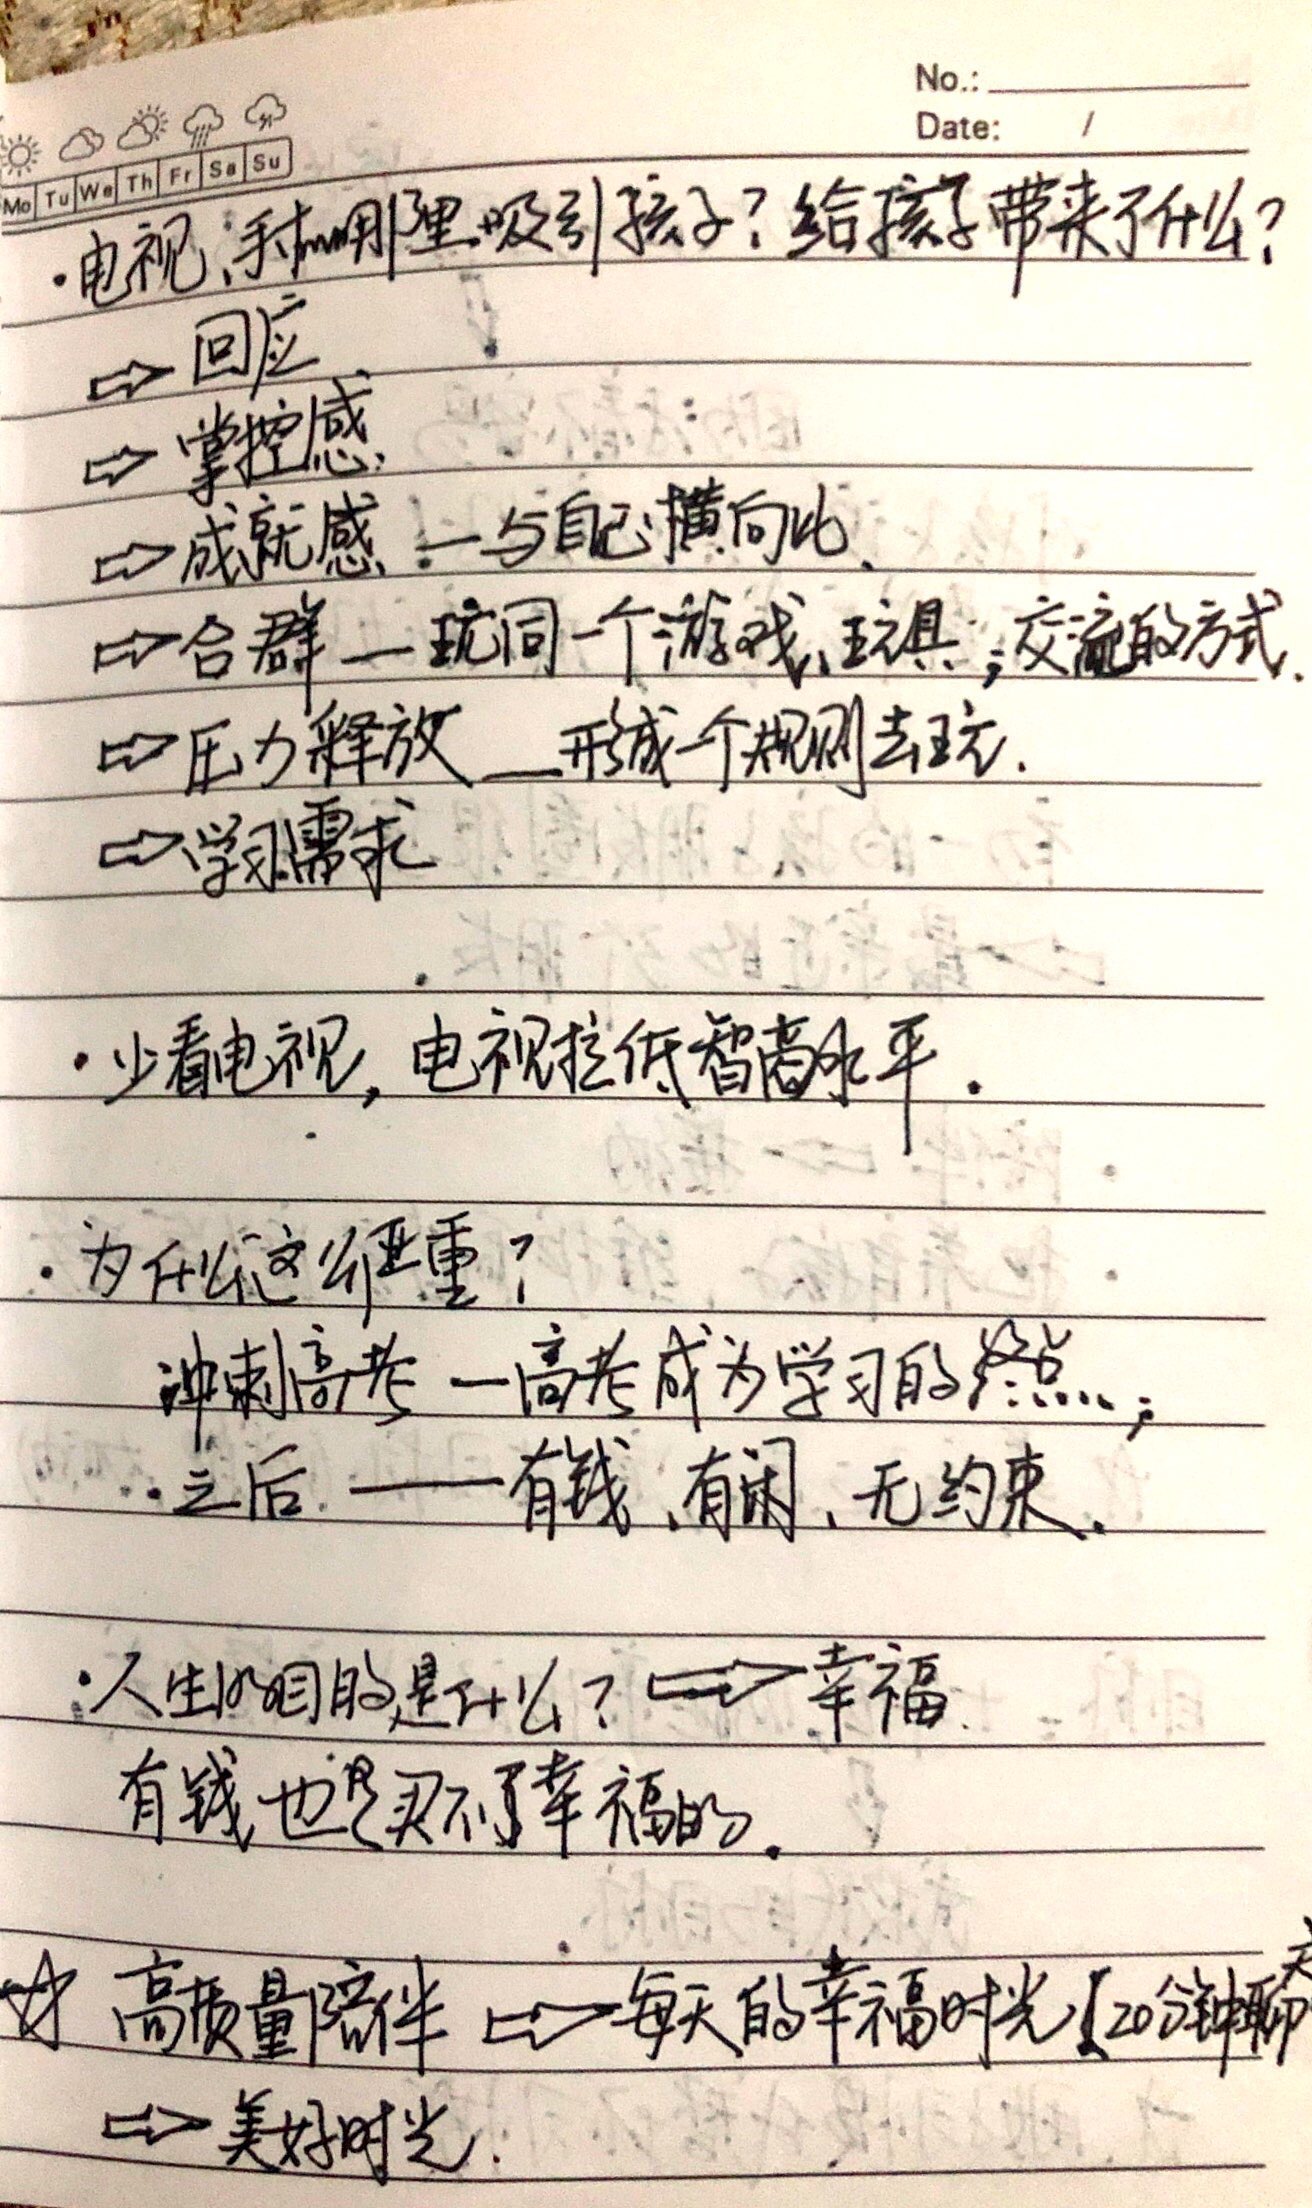 No.:
Date: /
Mo Tu We Th Fr Sa Su
·电视、手机哪里吸引孩子?给孩子带来了什么?
⇨回应
⇨掌控感.
⇨成就感.—与自己横向比.
⇨合群—玩同一个游戏、玩具;交流的方式.
⇨压力释放—形成一个规则去玩.
⇨学习需求
·少看电视,电视拉低智商水平.
·为什么这么严重?
冲刺高考—高考成为学习的终点;
·之后.——有钱、有闲、无约束.
·人生的目的是什么?⇨幸福.
有钱也是买不了幸福的.
☆高质量陪伴⇨每天的幸福时光【20分钟聊天
⇨美好时光.